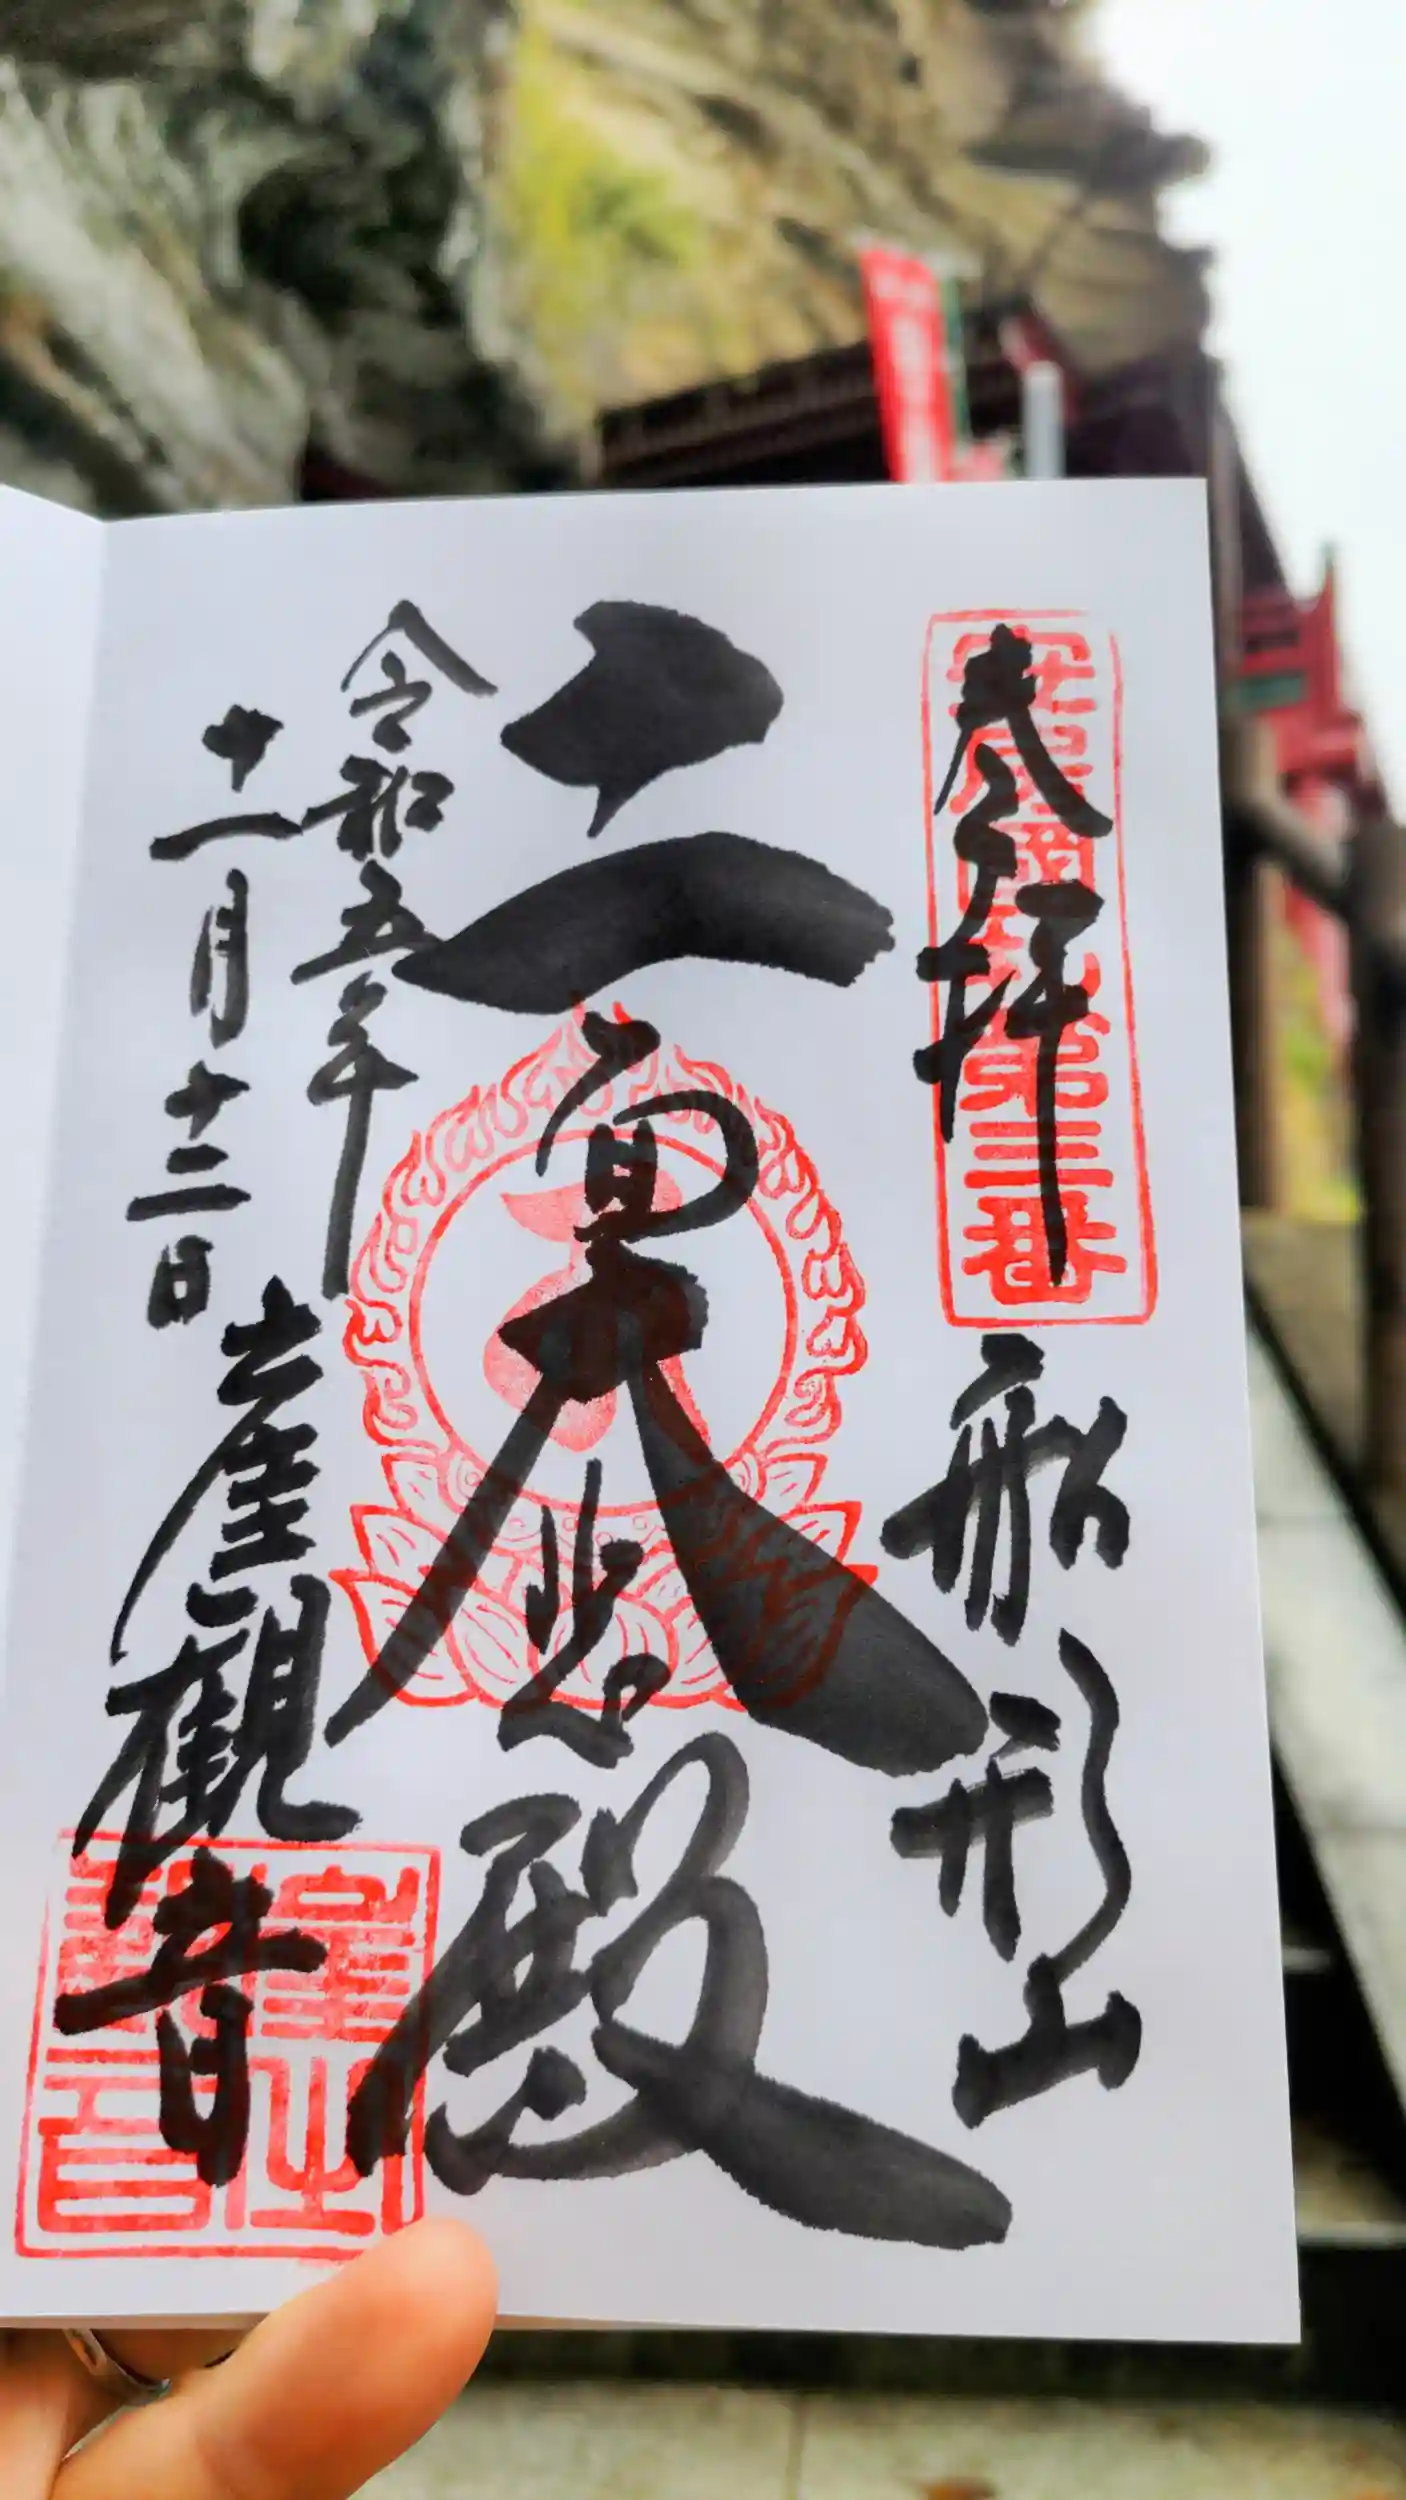 奉拝
船形山
安房國札第三番
十一面大悲殿
令和五年
十一月十二日
崖觀音
崖之觀音